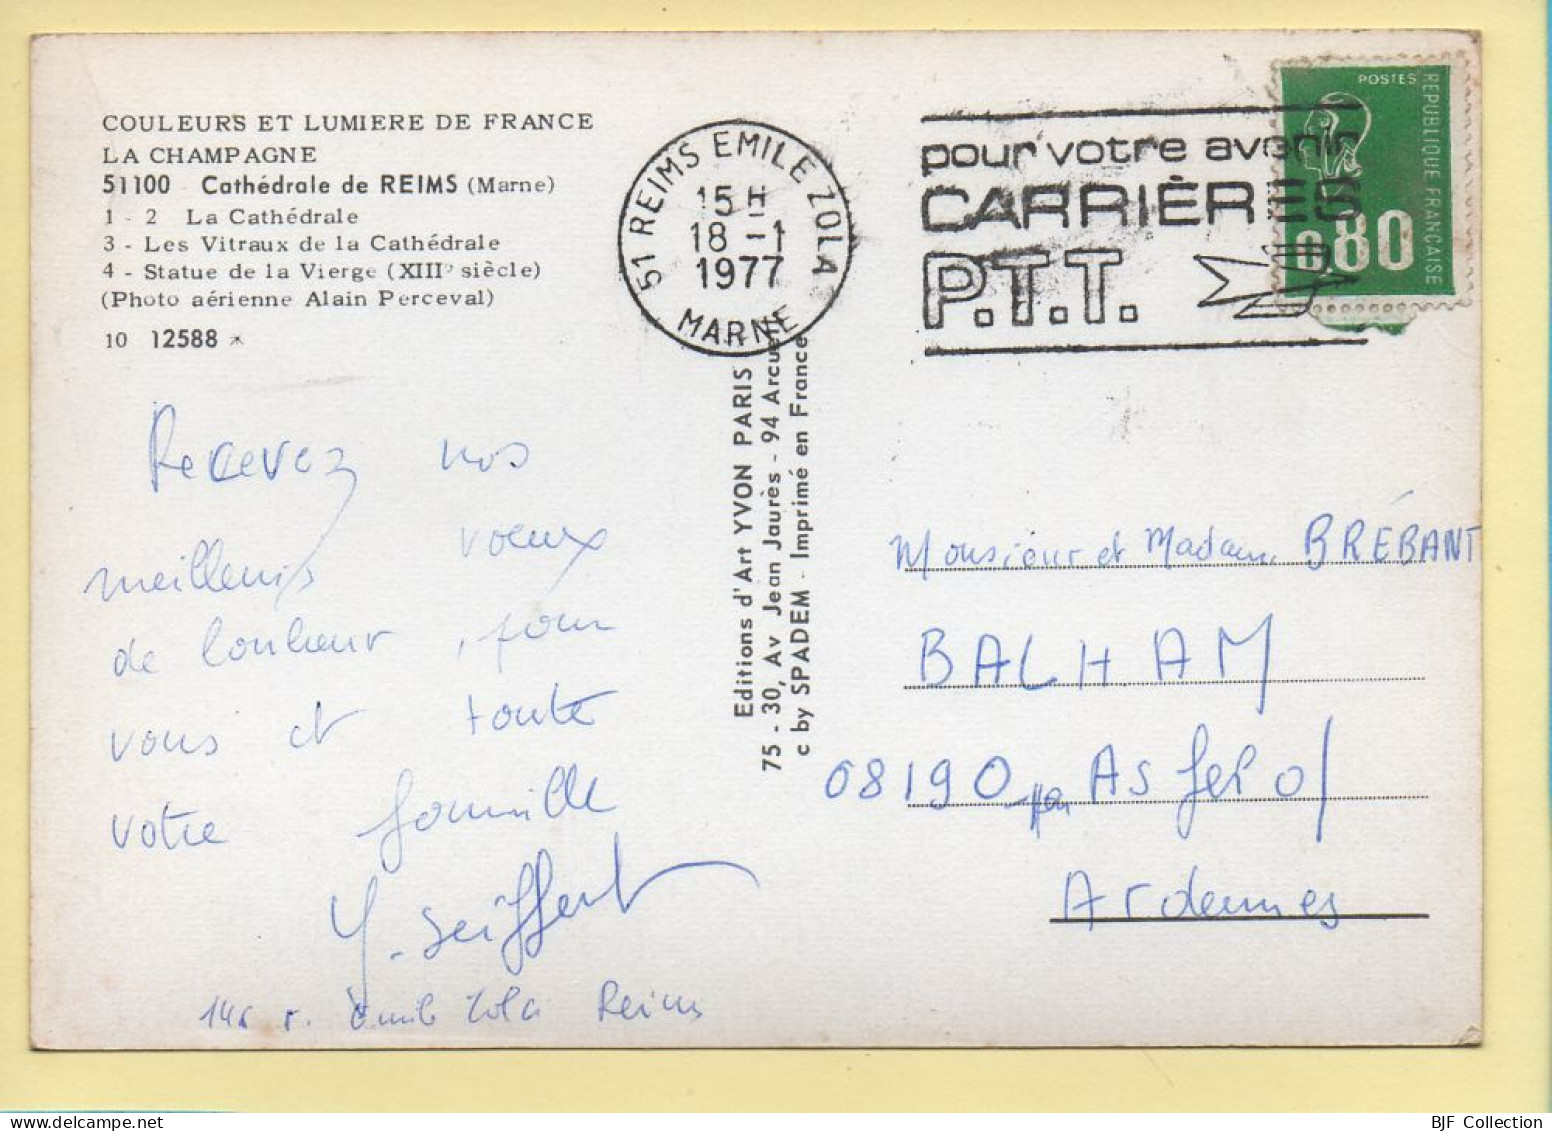 COULEURS ET LUMIERE DE FRANCE
LA CHAMPAGNE
51100 Cathédrale de REIMS (Marne)
1 - 2 La Cathédrale
3 - Les Vitraux de la Cathédrale
4 - Statue de la Vierge (XIIIe siècle)
(Photo aérienne Alain Perceval)
10 12588 *
51 REIMS EMILE ZOLA
15 H
18 -1
1977
MARNE
pour votre avenir
CARRIÈRES
P.T.T.
POSTES
REPUBLIQUE FRANÇAISE
0,80
Recevez nos
meilleurs voeux
de bonheur, pour
vous et toute
votre famille
Y. Seiffert
r. Emile Zola Reims
Editions d'Art YVON PARIS
75 - 30, Av Jean Jaurès - 94 Arcueil
c by SPADEM - Imprimé en France
Monsieur et Madame BRÉBANT
BALHAM
08190 par Asfeld
Ardennes
BJF Collection